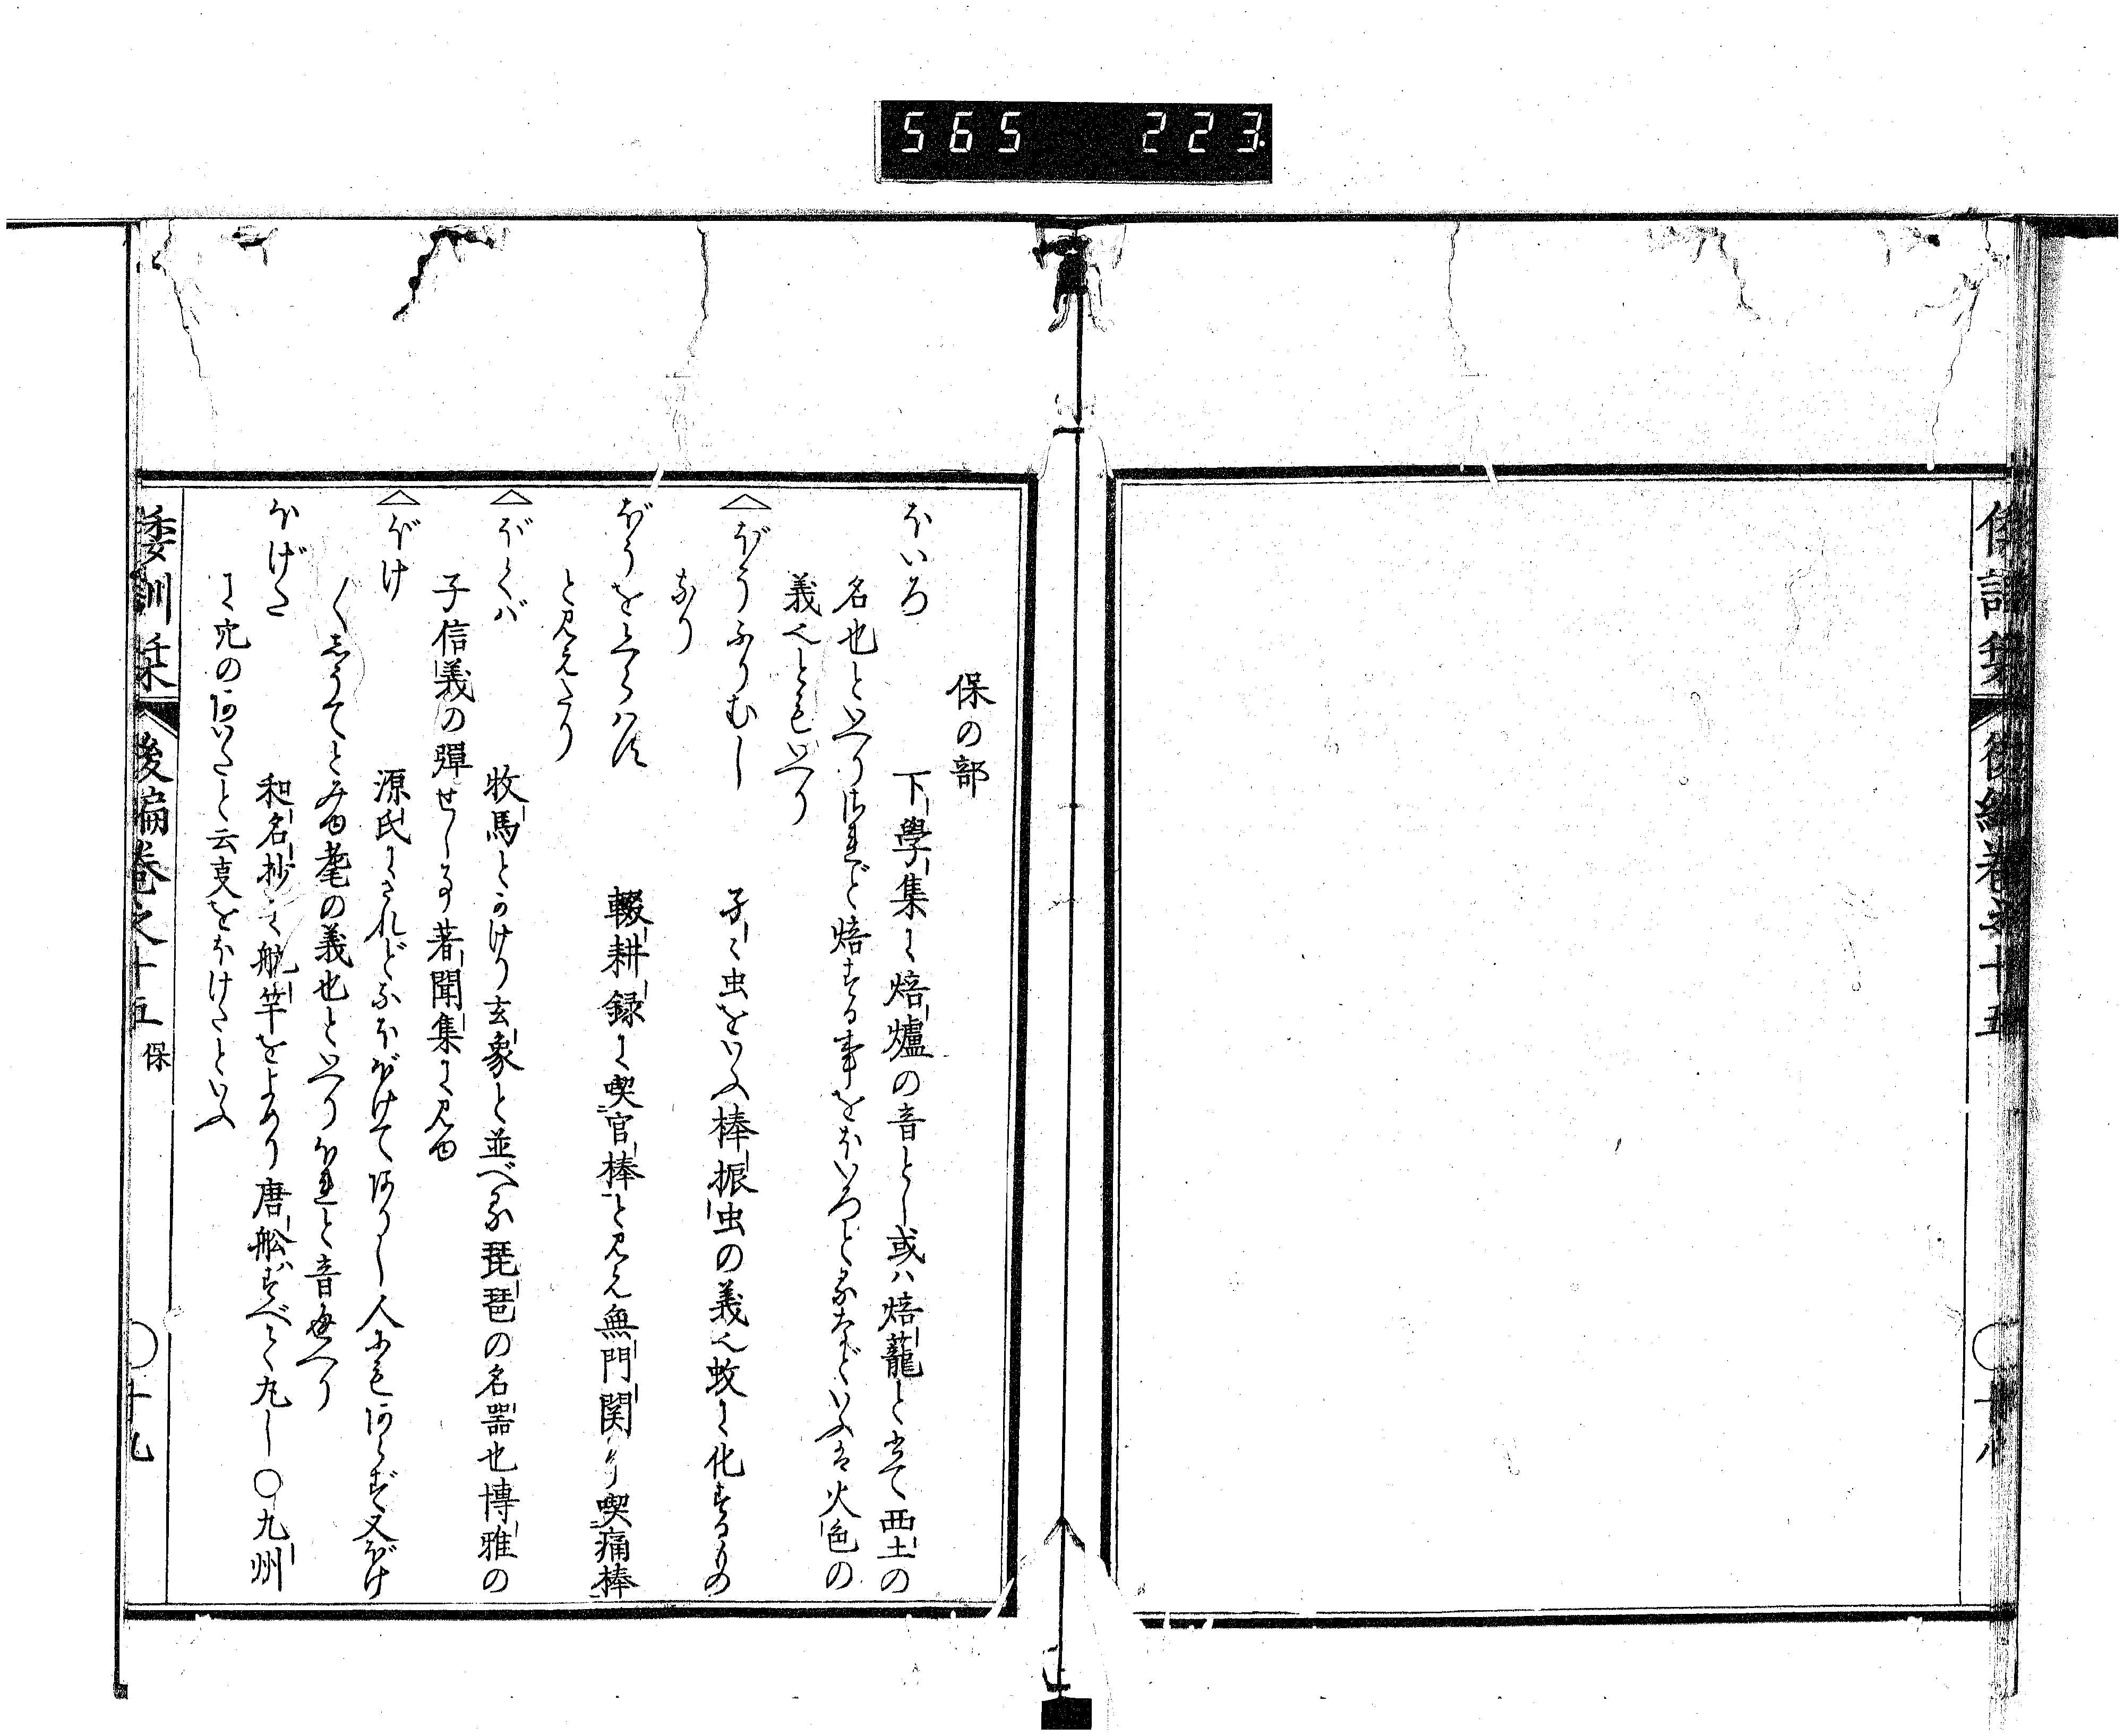 565 223
倭訓栞 後編巻之十五 〇十八
保の部
ほいろ 下學集に焙爐の音とし或ハ焙蘢と当て西土の
名也といへりされど焙する事をほいろどるなどいふは火色の
義也ともいへり
ぼうふりむし 孑孑虫をいふ棒振虫の義也蚊に化するもの
なり
ぼうをくらハす 輟耕録に喫官棒と見え無門関に喫痛棒
と見えたり
ぼくば 牧馬とかけり玄象と並べる琵琶の名器也博雅の
子信義の彈せし事著聞集に見ゆ
ぼけ 源氏にされどふほぼけてあるし人にもあらず又ぼけ
〳〵しうてとみゆ耄の義也といへりほれと音通へり
ほげた 和名抄に䑨竿をよめり唐舩ずべて丸し〇九州
に穴のあいたと云事をほげたといふ
倭訓栞 後編巻之十五 保 〇十九